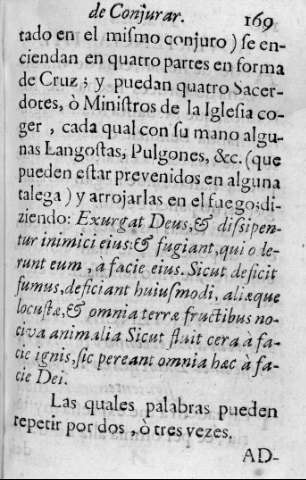 de Conjurar. 169
tado en el miſmo conjuro) ſe en-
ciendan en quatro partes en forma
de Cruz; y puedan quatro Sacer-
dotes, ò Miniſtros de la Igleſia co-
ger, cada qual con ſu mano algu-
nas Langoſtas, Pulgones, &c. (que
pueden eſtar prevenidos en alguna
talega) y arrojarlas en el fuego; di-
ziendo: Exurgat Deus, & diſsipen-
tur inimici eius: & fugiant, qui o le-
runt eum, à facie eius. Sicut deficit
fumus, deficiant huiuſmodi, aliæque
locuſtæ, & omnia terræ fructibus no-
civa animalia Sicut fluit cera à fa-
cie ignis, ſic pereant omnia hæc à fa-
cie Dei.
Las quales palabras pueden
repetir por dos, ò tres vezes.
AD-